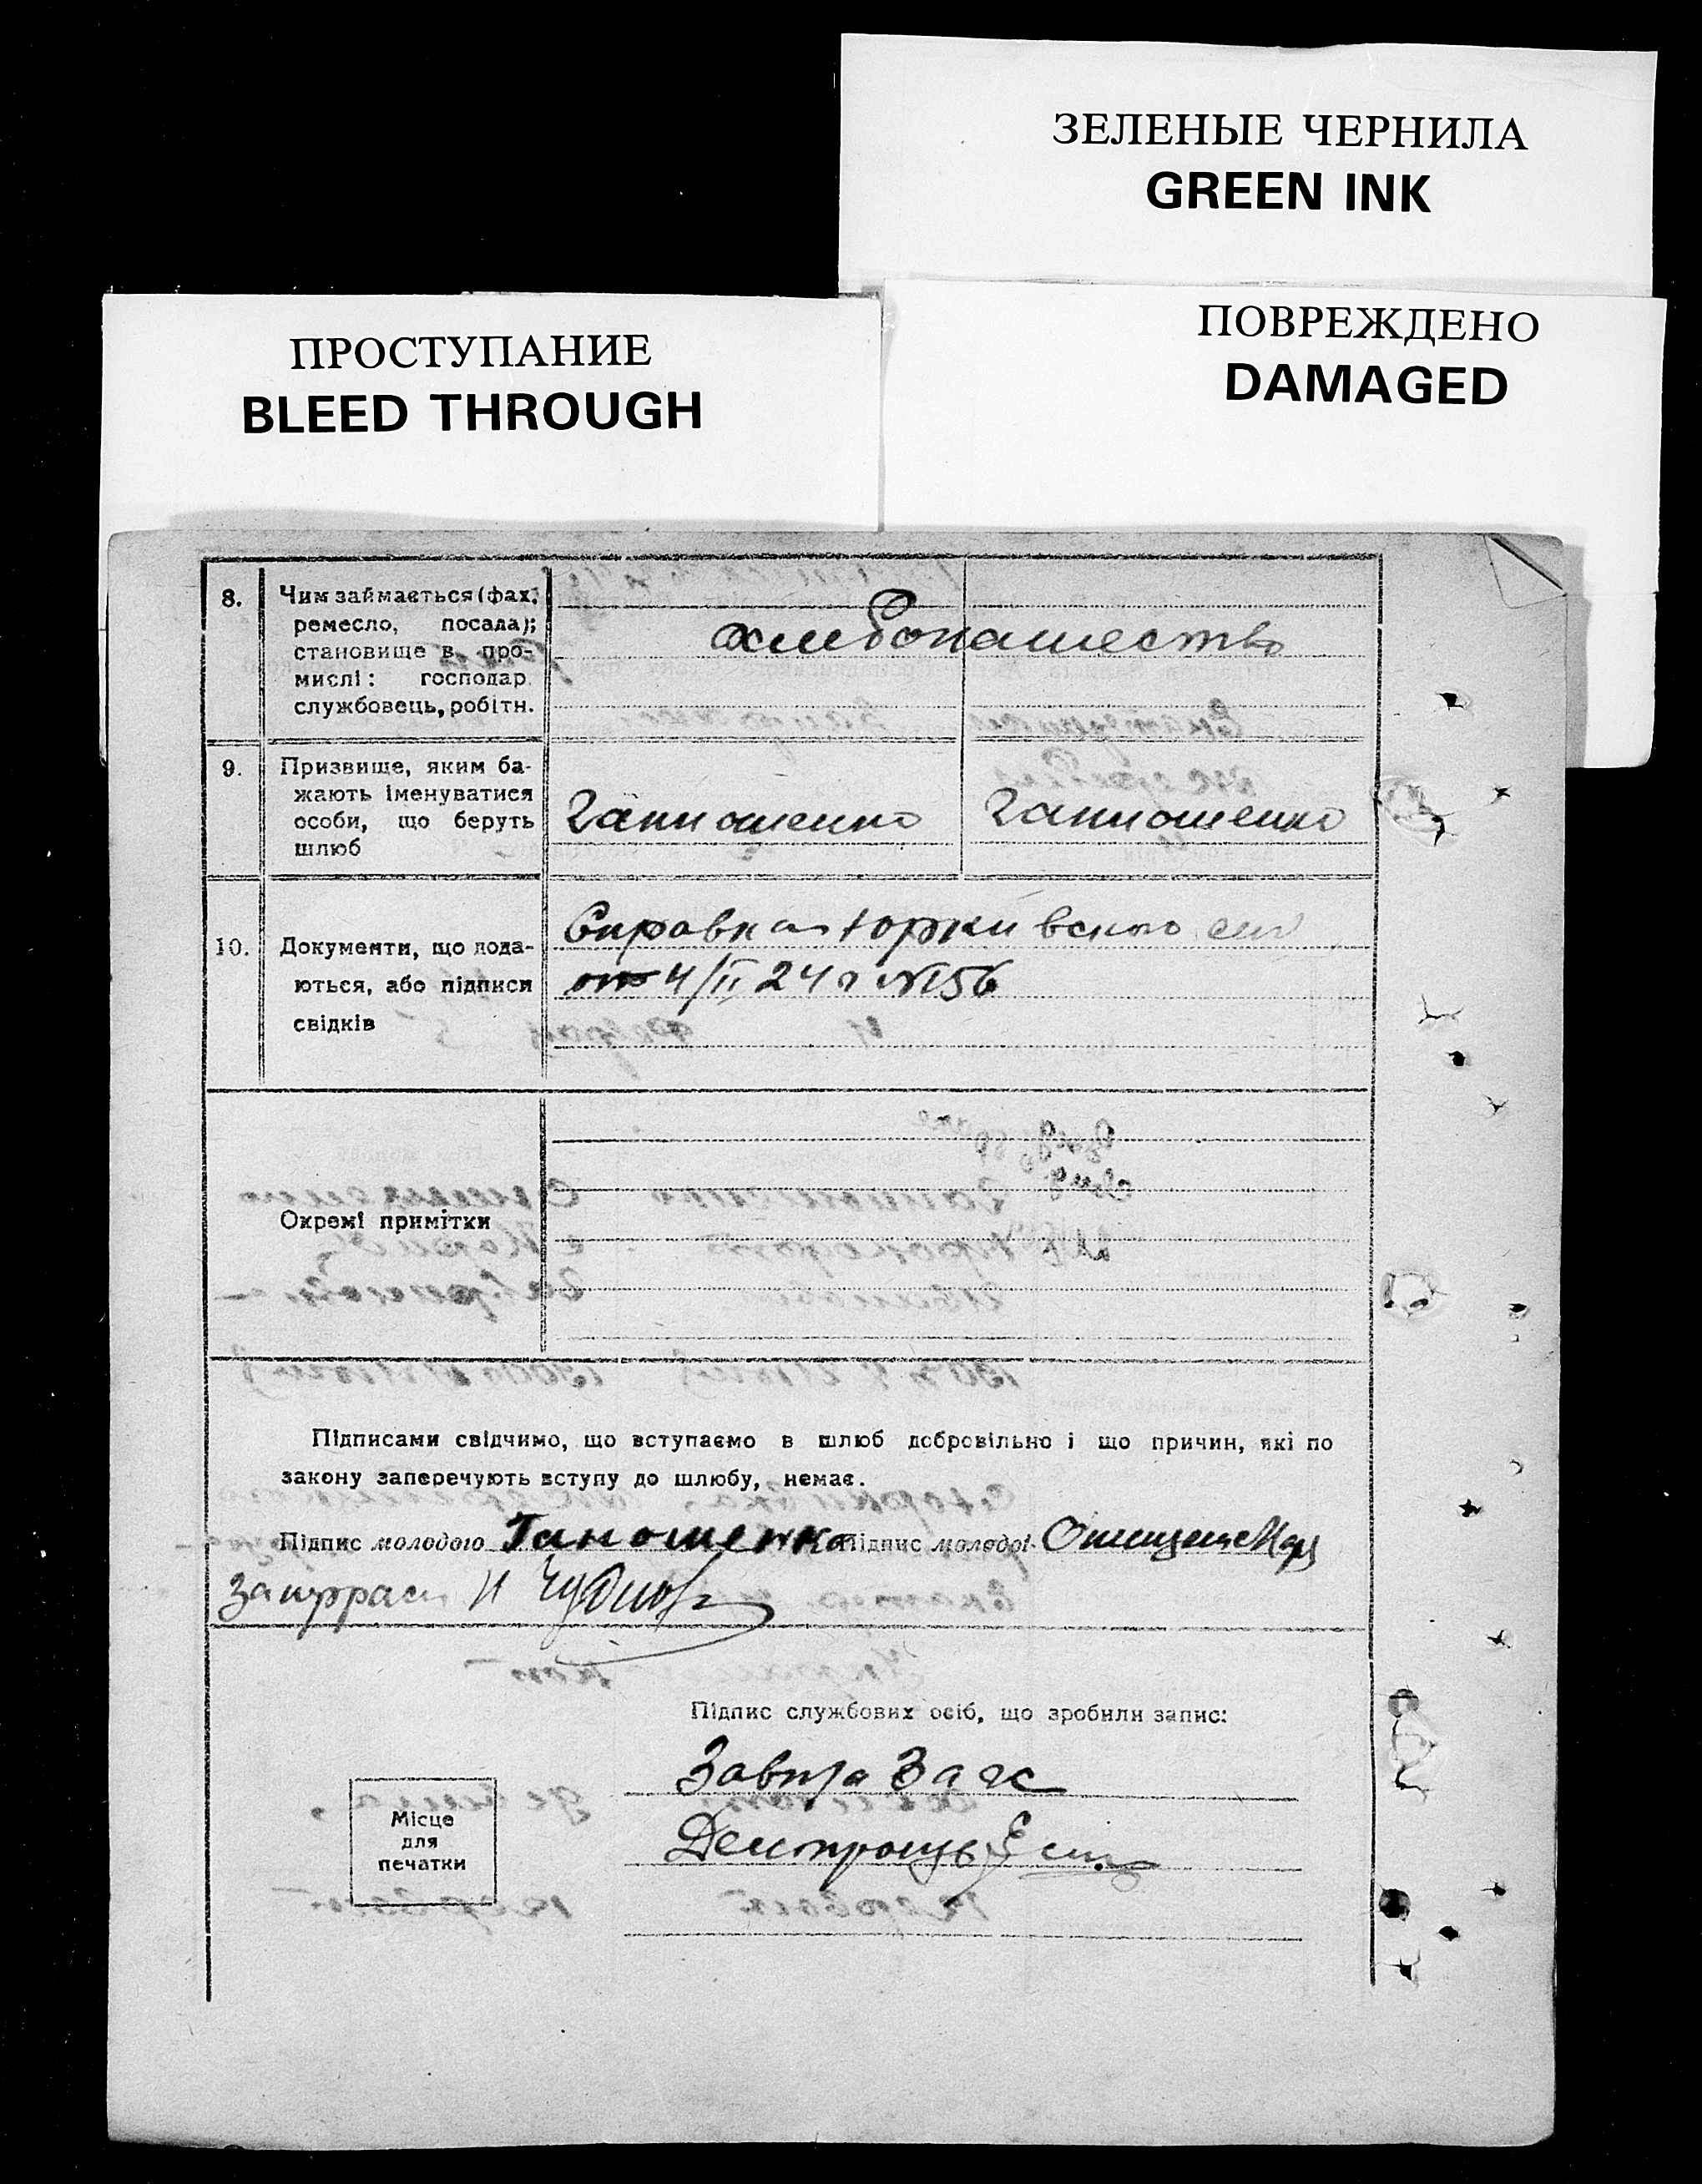 ЗЕЛЕНЫЕ ЧЕРНИЛА
GREEN INK
ПОВРЕЖДЕНО
DAMAGED
ПРОСТУПАНИЕ
BLEED THROUGH
8. Чим займається (фах,
ремесло, посада);
становище в про-
мислі: господар.
службовець, робітн.
хлебопашество
9. Призвище, яким ба-
жають іменуватися
особи, що беруть
шлюб
Ганношенко Ганношенко
10. Документи, що пода-
ються, або підписи
свідків
Справка
от 4/II 24 г №156
Окремі примітки
Підписами свідчимо, що вступаємо в шлюб добровільно і що причин, які по
закону заперечують вступу до шлюбу, немає.
Підпис молодого Ганошенко Підпис молодої
Підпис службових осіб, що зробили запис:
Загс
Місце
для
печатки